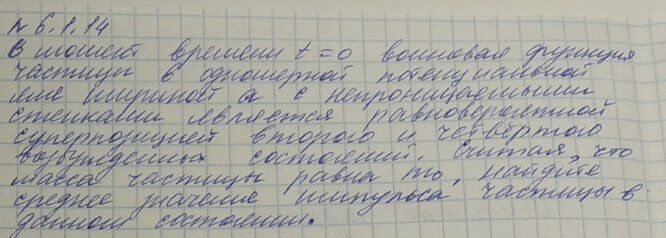 № 6.1.14
В момент времени t=0 волновая функция
частицы в одномерной потенциальной
яме шириной a с непроницаемыми
стенками является равновероятной
суперпозицией второго и четвёртого
возбуждённых состояний. Считая, что
масса частицы равна m₀, найдите
среднее значение импульса частицы в
данном состоянии.